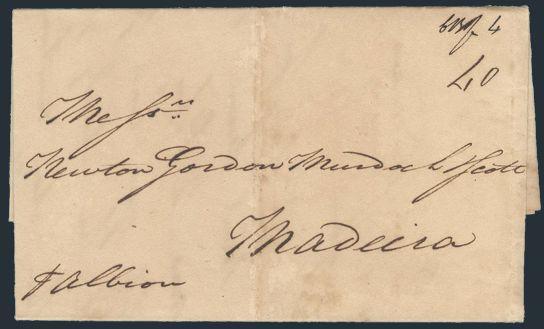 4
40
Messrs
Newton Gordon Murdoch & Scott
Madeira
p Albion